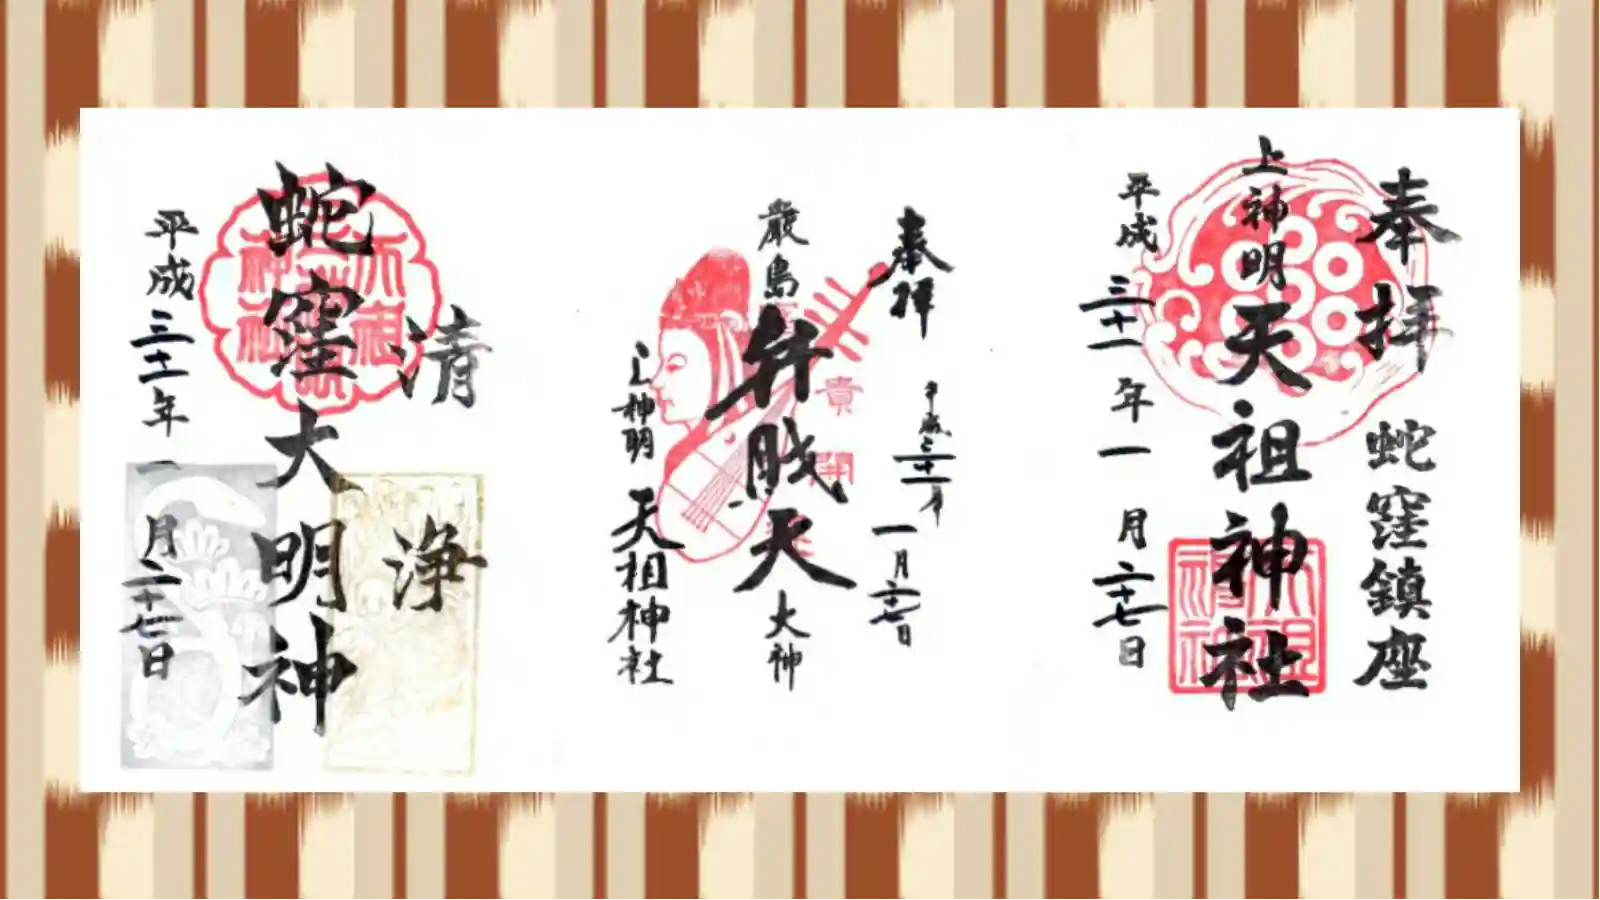 奉拝
蛇窪鎮座
上神明天祖神社
平成三十一年一月二十七日
奉拝
平成三十一年一月二十七日
厳島弁財天大神
上神明天祖神社
清浄
蛇窪大明神
平成三十一年一月二十七日